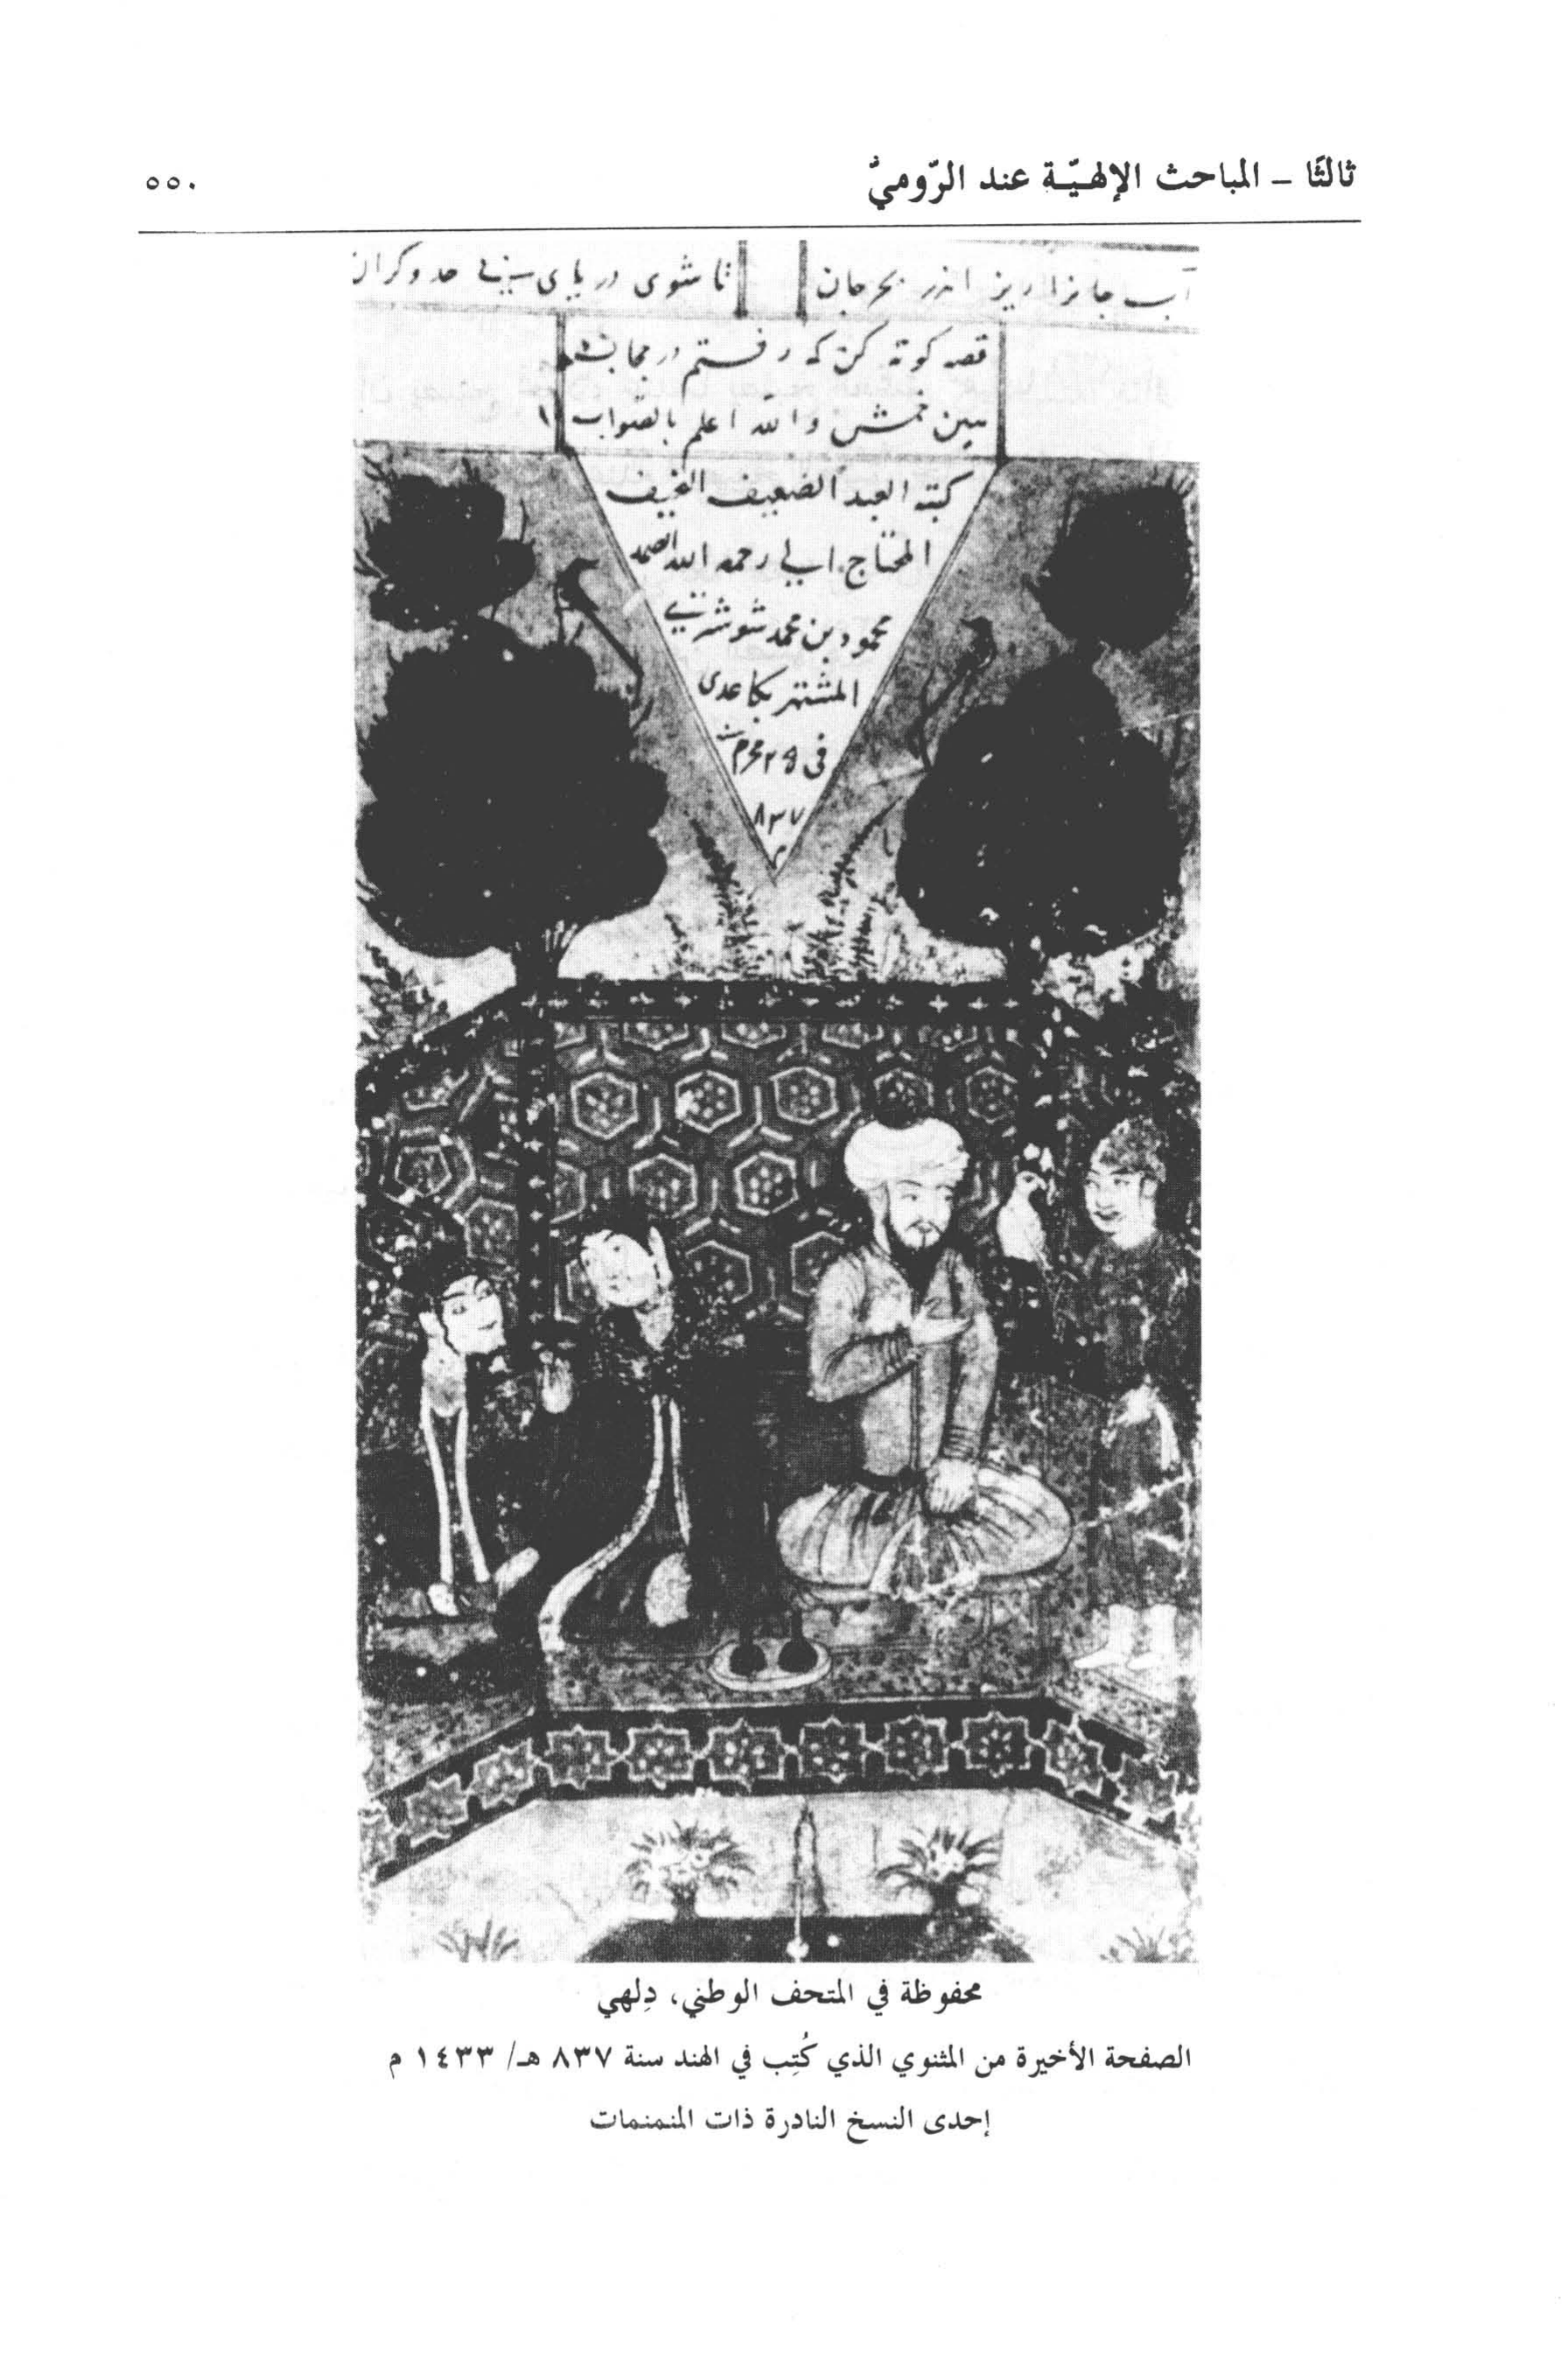 ثالثًا – المباحث الإلهيّة عند الرّوميّ
٥٥٠
آب جانرا ریز اندر بحر جان
تا شوی دریای بی حد و کران
قصه کوته کن که رفتم در حجاب
هین خمش والله اعلم بالصواب
کتبه العبد الضعیف النحیف
المحتاج الی رحمة الله الصمد
محمود بن محمد
المشتهر بکاغدی
فی محرم
٨٣٧
محفوظة في المتحف الوطني، دِلهي
الصفحة الأخيرة من المثنوي الذي كُتِب في الهند سنة ٨٣٧ هـ/ ١٤٣٣ م
إحدى النسخ النادرة ذات المنمنمات